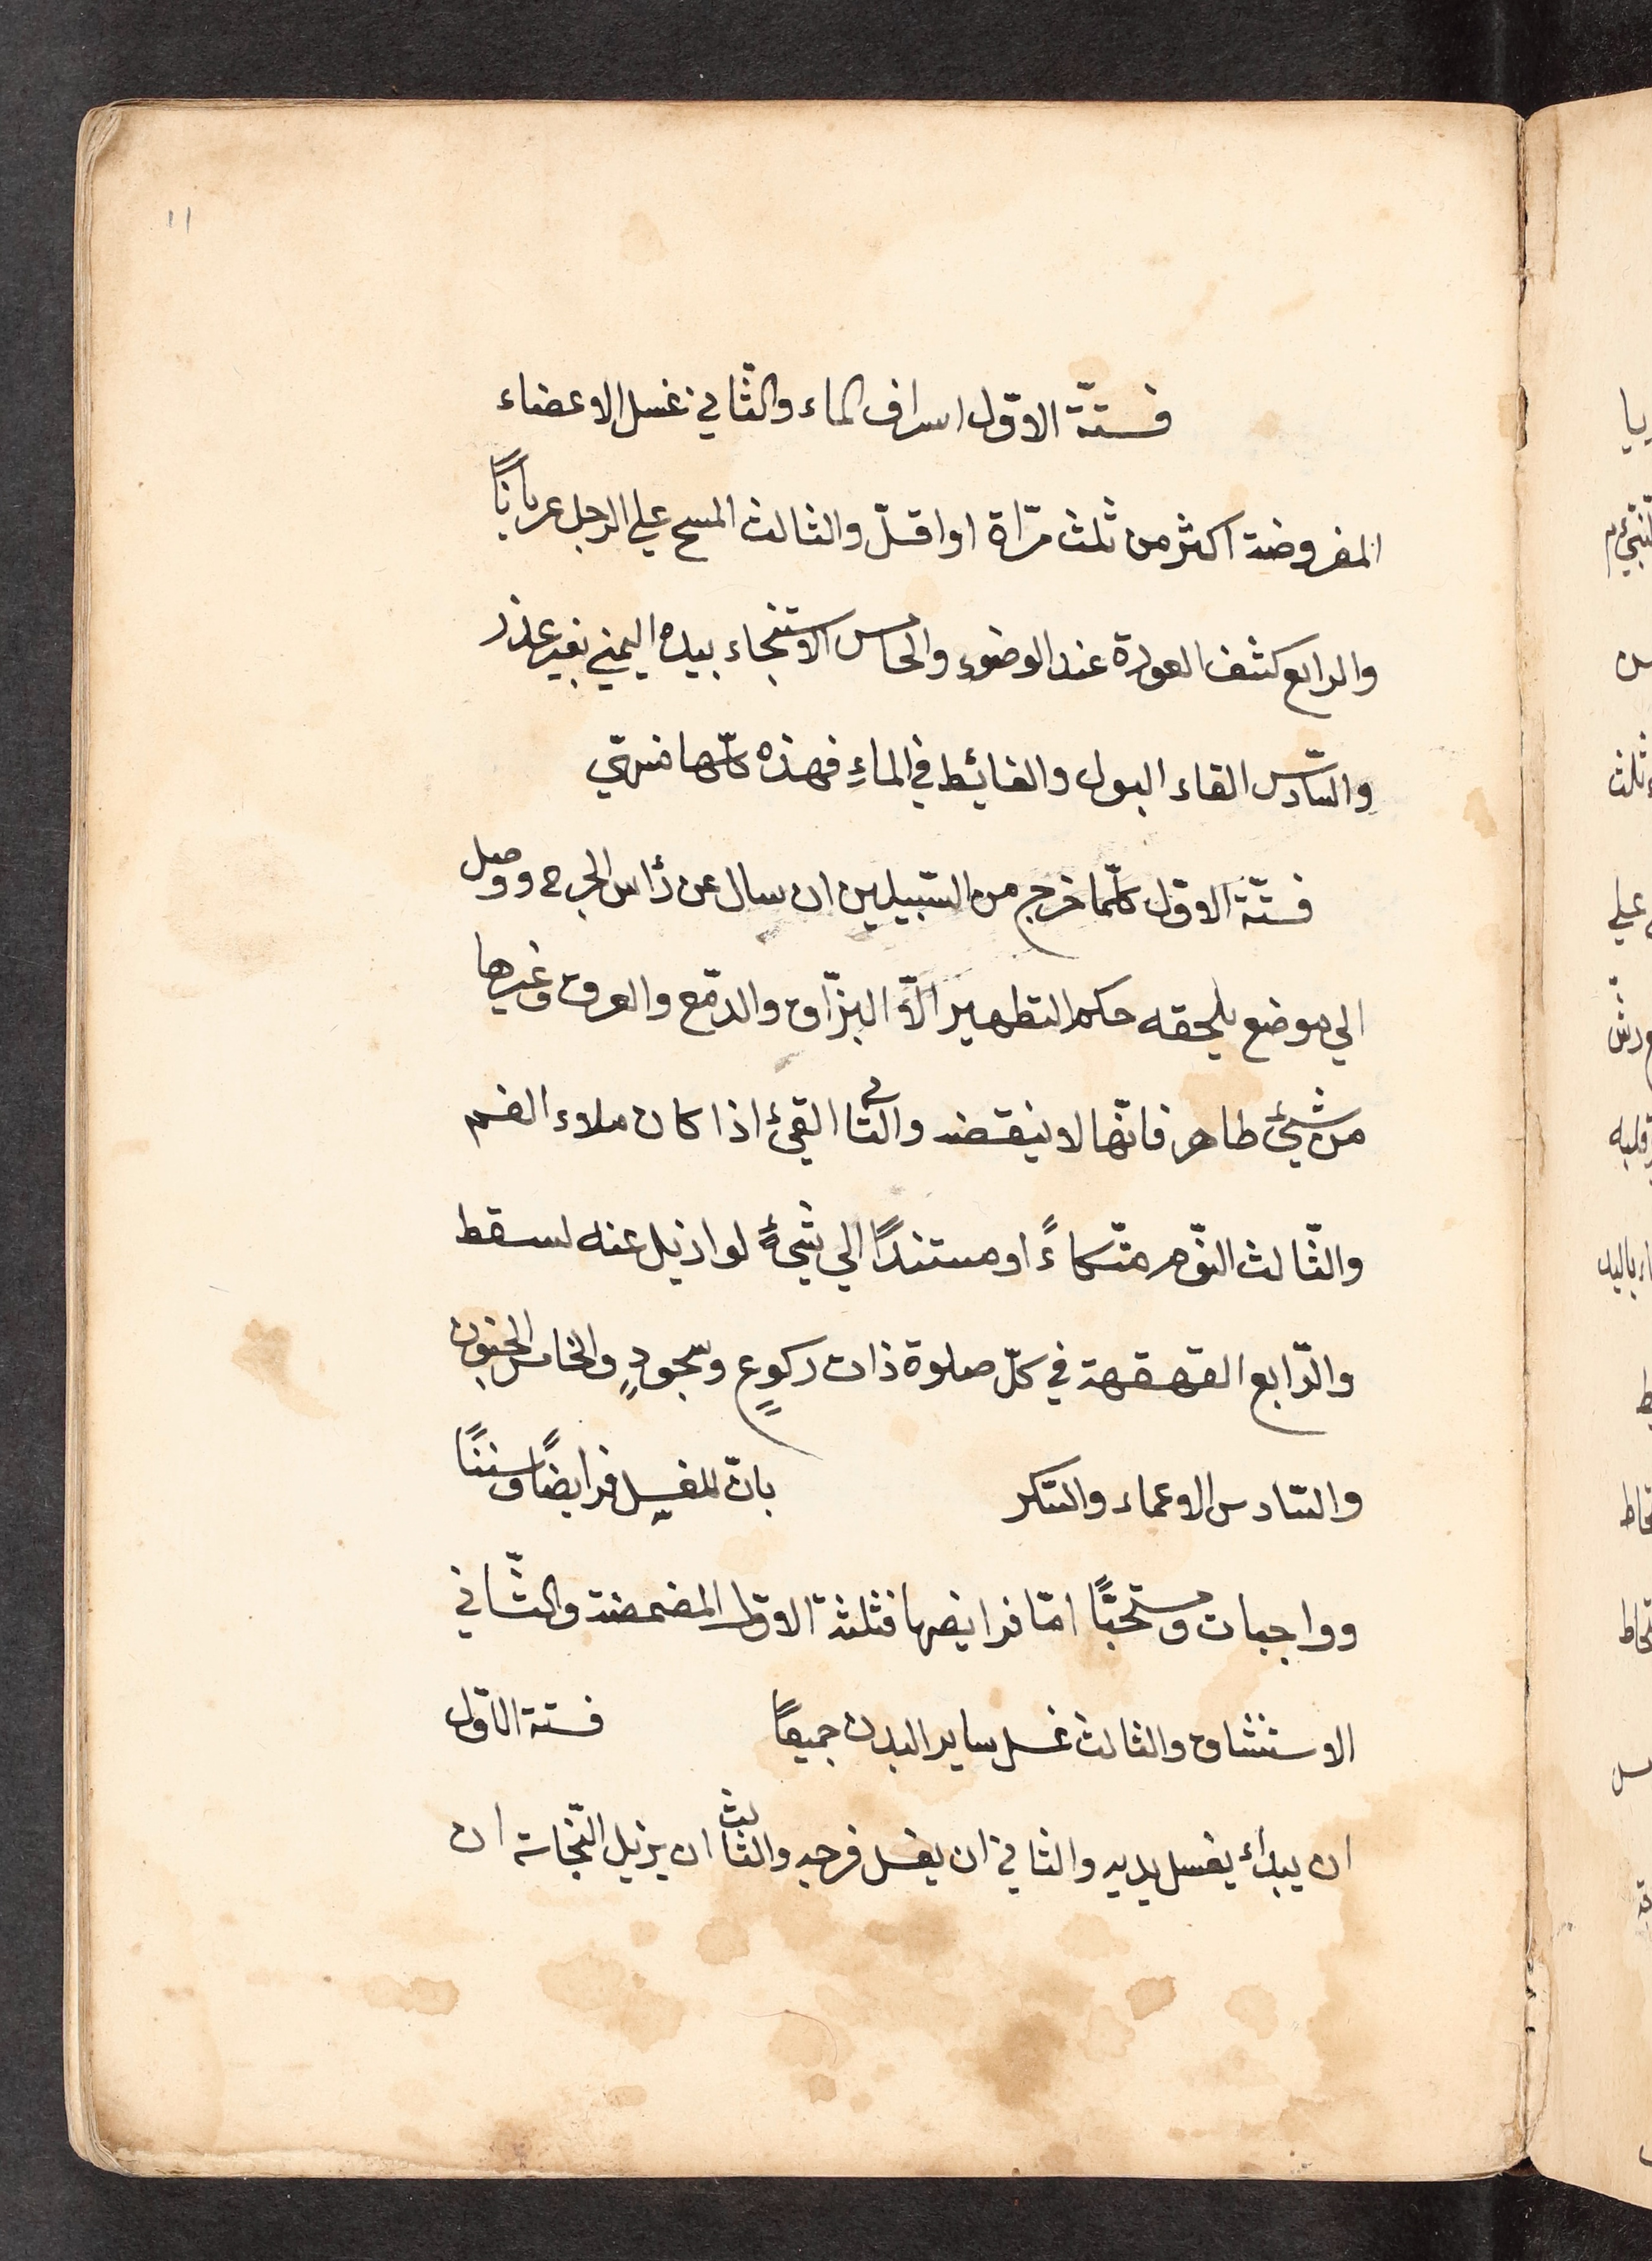 ١١
فستّة الاوّل اسراف الماء والثّاني غسل الاعضاء
المفروضة اكثر من ثلث مرّاة او اقلّ والثالث المسح علي الرجل عرياناً
والرابع كشف العورة عند الوضوء والخامس الاستنجاء بيده اليمني بغير عذر
والسّادس القاء البول والغائط في الماءِ فهذه كلّها منهيّ
فستّة الاوّل كلّما خرج من السّبيلين ان سال عن رأس الجرح ووصل
الي موضع يلحقه حكم التطهير الّا البزّاق والدّمع والعرق وغيرها
من شيئ طاهر فانّها لا ينقضه والثّاني القيئ اذا كان ملاء الفم
والثّالث النّوم متّكاءً او مستنداً الي شيءٍ لو ازيل عنه لسقط
والرّابع القهقهة في كلّ صلوة ذات ركوعٍ وسجودٍ والخامس الجنون
والسّادس الاعماء والسّكر بانّ للغسل فرايضاً وسنناً
وواجبات ومستحبّاً امّا فرايضها فثلثة الاوّل المضمضة والثّاني
الاستنشاق والثالث غسل ساير البدن جميعاً فستة الاوّل
ان يبدأ يغسل يديه والثاني ان يغسل فرجه والثالث ان يزيل النّجاسة ان